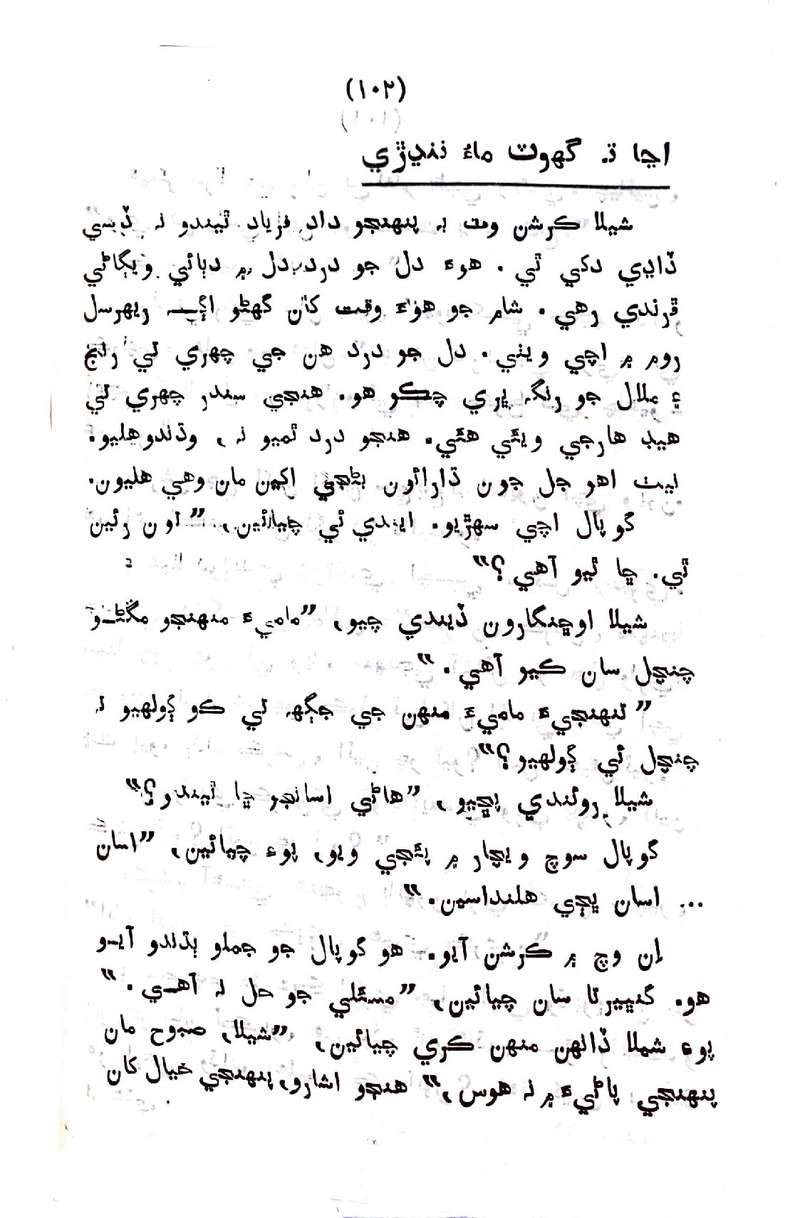 (١٠٢)
اڃا تہ گهوٽ ماءُ ننڍڙي
شيلا ڪرشن وٽ بہ پنهنجو داد فرياد ٿيندو نہ ڏسي
ڏاڍي دکي ٿي. هوءَ دل جو درد دل ۾ دٻائي ويڳاڻي
ڦرندي رهي. شام جو هوءَ وقت کان گهڻو اڳ ريهرسل
روم ۾ اچي ويٺي. دل جو درد هن جي چهري تي رنج
۽ ملال جو رنگ ڀري چڪو هو. هنجي سندر چهري تي
هيڊ هارجي ويئي هئي. هنجو درد ٿميو نہ، وڌندو هليو.
نيٺ اهو جل جون ڌارائون بڻجي اکين مان وهي هليون.
گوپال اچي سهڙيو. ايندي ئي چيائين، ”تون رئين
ٿي. ڇا ٿيو آهي؟“
شيلا اوڇنگارون ڏيندي چيو، ”ماميءَ منهنجو مڱڻو
چنچل سان ڪيو آهي.“
”تنهنجيءَ ماميءَ منهن جي جڳهہ تي ڪو ڳولهيو نہ
چنچل ئي ڳولهيو؟“
شيلا روئندي پڇيو، ”هاڻي اسانجو ڇا ٿيندو؟“
گوپال سوچ ويچار ۾ پئجي ويو، پوءِ چيائين، ”اسان
... اسان ڀڄي هلنداسين.“
اِن وچ ۾ ڪرشن آيو. هو گوپال جو جملو ٻڌندو آيو
هو. گنڀيرتا سان چيائين، ”مسئلي جو حل نہ آهي.“
پوءِ شملا ڏانهن منهن ڪري چيائين، ”شيلا، صبوح مان
پنهنجي پاڻيءَ ۾ نہ هوس،“ هنجو اشارو، پنهنجي خيال کان